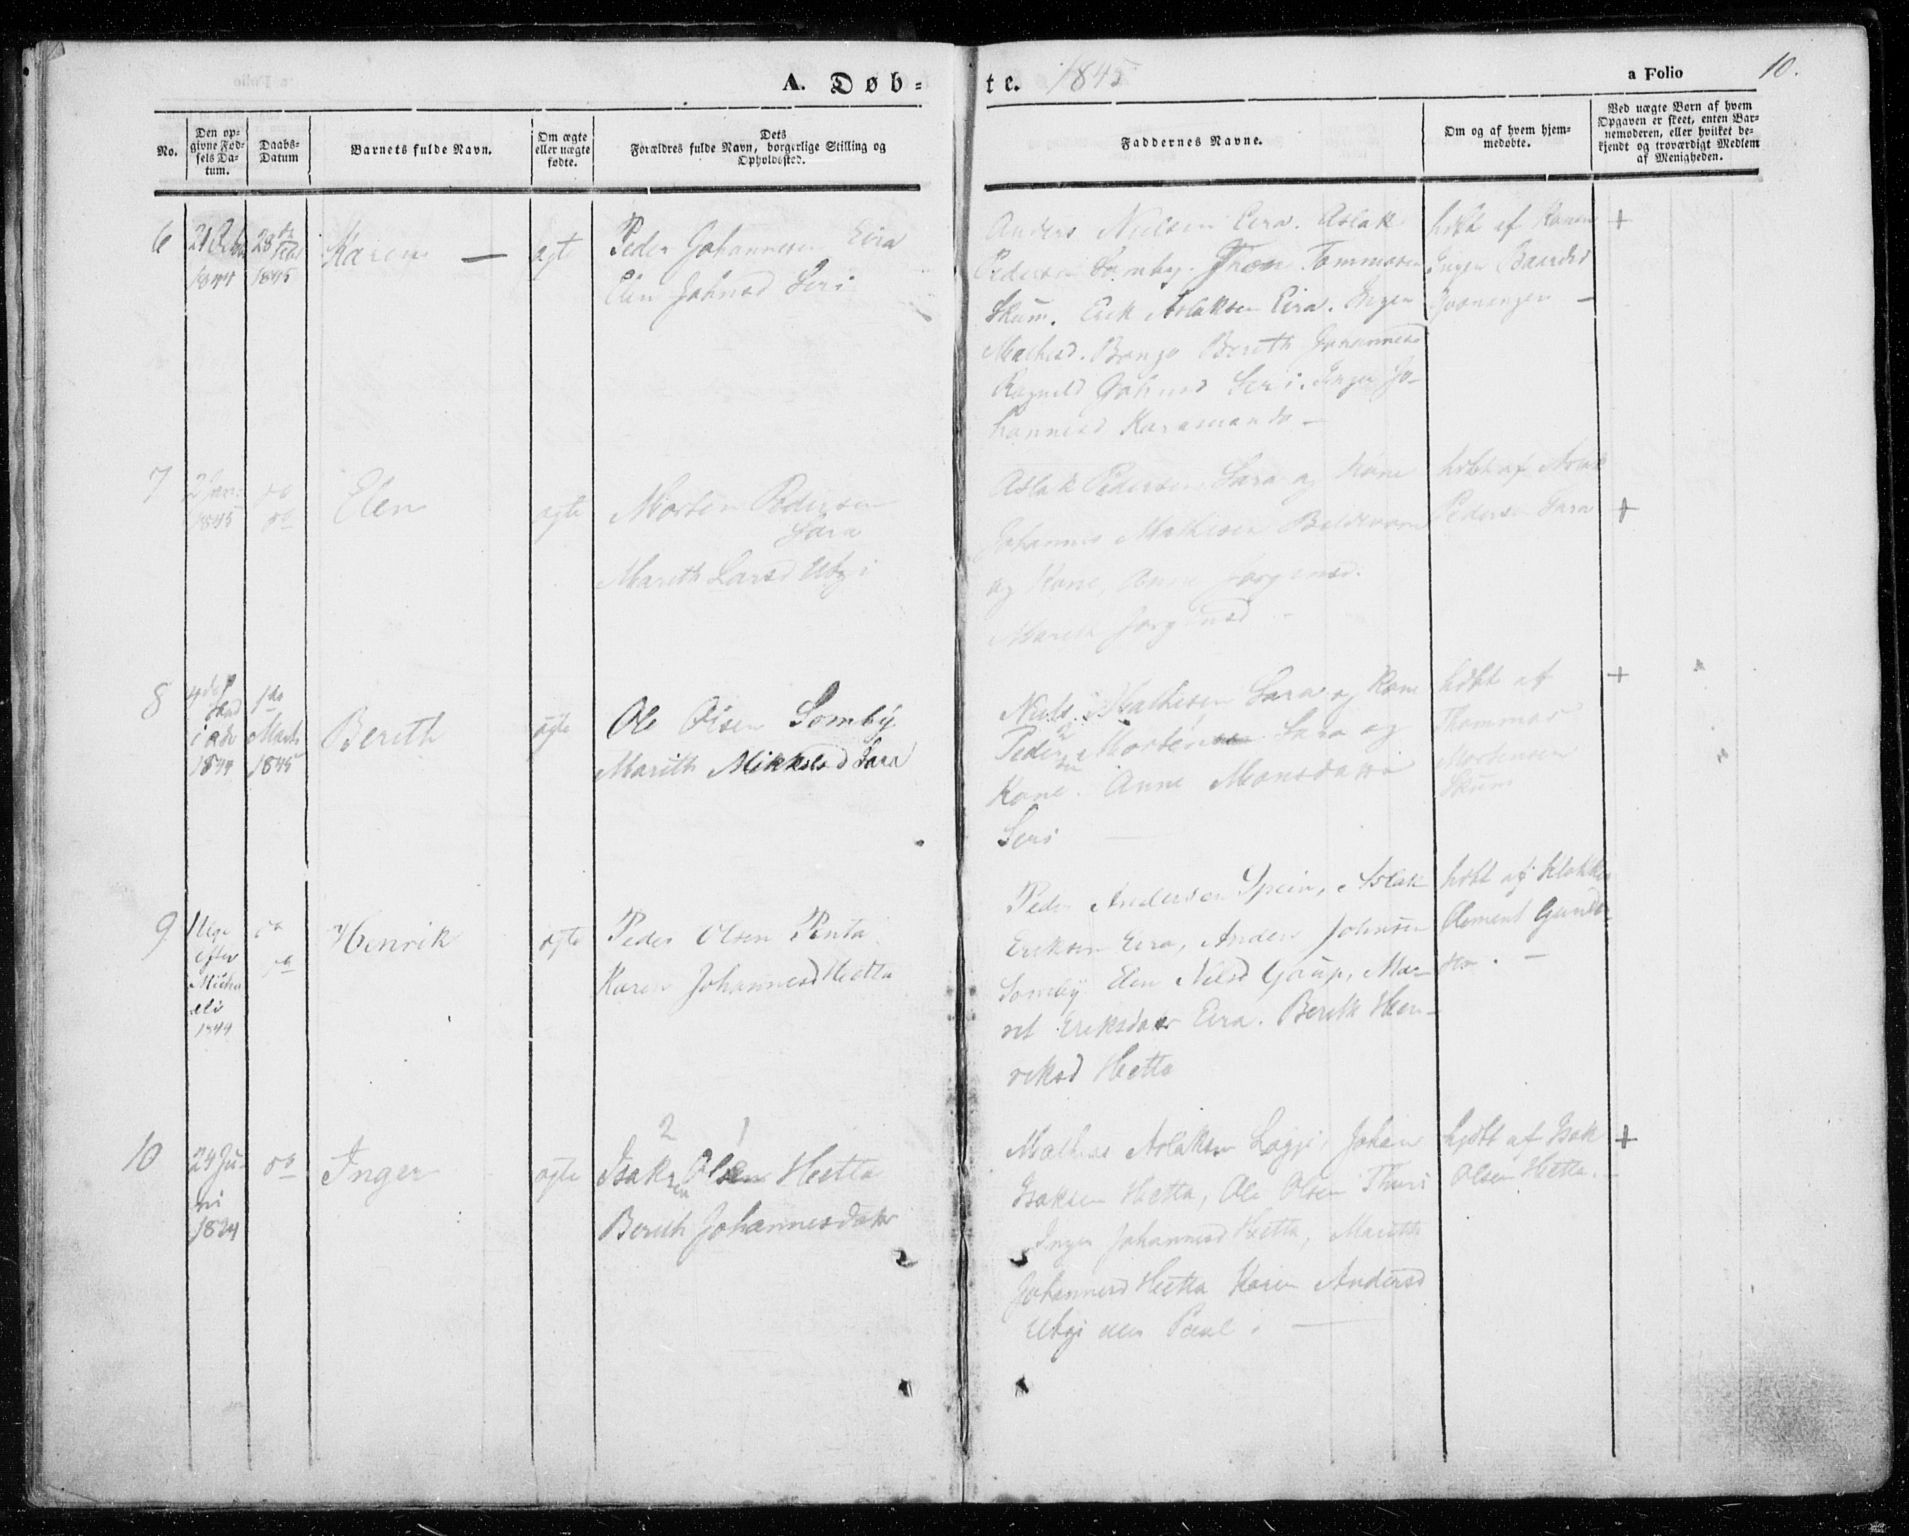 A. Døb-
te. 1845
a Folio 10.
No.
Den op-
givne Fød-
sels Da-
tum.
Daabs-
Datum
Barnets fulde Navn.
Om ægte
eller uægte
fødte.
Dets
Forældres fulde Navn, borgerlige Stilling og
Opholdssted.
Faddernes Navne.
Om og af hvem hjem-
medøbte.
Ved uægte Børn af hvem
Opgaven er skeet, enten Bar-
nemoderen, eller hvilket be-
kjendt og troværdigt Medlem
af Menigheden.
6
1844
28
1845
Karen —
ægte
Peder Johannesen Eira
Elen Johnsd Seri
Anders Nielsen Eira. Aslak
Pedersen Somby. Tommesen
Skum. Erik Aslaksen Eira. Inger
Mathisd. Bongo Bereth Johannesd
Ragnild Johnsd Seri. Inger Jo-
hannesd
hdbt af Konen
Inger
+
7
2 Jan:
1845
do
do
Elen
ægte
Morten Pedersen
Sara
Mareth Larsd Utsi
Aslak Pedersen Sara og Kone
Johannes Mathisen
og Kone, Anne Jorgensd.
Maren Jorgensd —
hdbt af Aslak
Pedersen Sara
+
8
1844
1ste
Marts
1845
Bereth
ægte
Ole Olsen Somby
Marith Mikkelsd Sara
Niels Mathisen Sara og Kone
Peder Morten Sara og
Kone. Anne Monsdatter
Seri —
hdbt af
Thommas
Mortensen
Skum
+
9
1 Uge
efter
Micha
elis
1844
do
do
Henrik
ægte
Peder Olsen Penta
Karen Johannesd Hetta
Peder Andersen Spein, Aslak
Eriksen Eira, Anders Johnsen
Somby Elen Nilsd Gaup, Ma-
ret Eriksdatter Eira. Berith Hen-
riksd Hetta
hdbt af Klokker
Clement Gunder-
sen. —
10
24 Ju-
ni
do
Inger
ægte
2 1
Isaksen Olsen Hetta
Bereth Johannesdatter
Mathis Aslaksen Logje, Johan
Isaksen Hetta, Ole Olsen Thuri
Inger Johannesd Hetta, Marith
Johannesd Hetta Karen Andersd
Utsi
hjdbt af Isak
Olsen Hetta. —
+